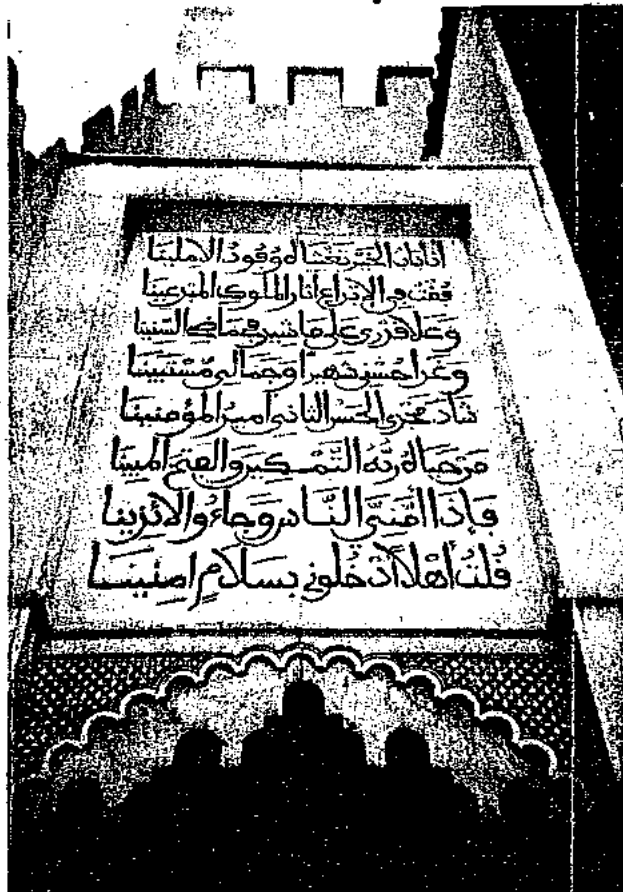 أنا باب الخير تغشاه وفود الآملينا
فقت في الإبداع آثار الملوك المبدعينا
وعلا قدري على ما شيد في ماضي السنينا
وغدا حسني شهيرا وجمالي مستبينا
شاد مجدي الحسن الثاني أمير المؤمنينا
من حباه ربه التمكين والفتح المبينا
فإذا أمني الناس وجاءوا
قلت أهلا أدخلوني بسلام آمنينا